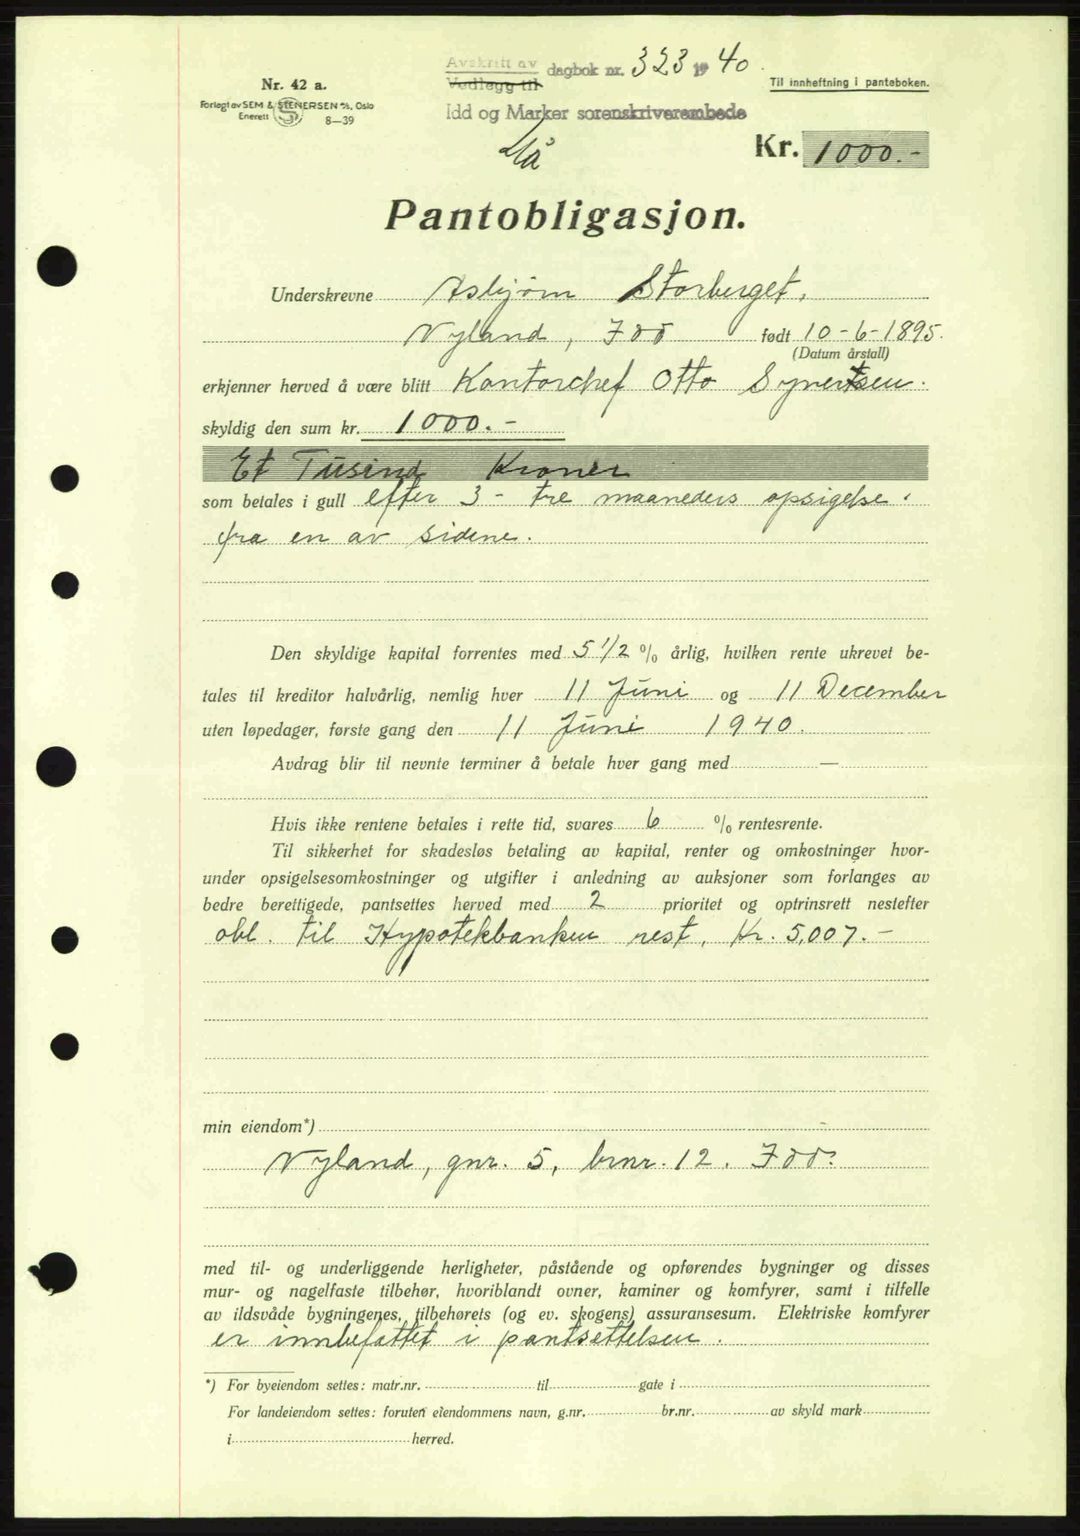 Avskrift av
Vedlegg til dagbok nr. 323 1940.
Idd og Marker sorenskriverembede
Nr. 42 a.
Forlagt av SEM & STENERSEN A/S, Oslo
Enerett 8—39
Til innheftning i panteboken.
Kr. 1000.-
Pantobligasjon.
Underskrevne Asbjørn Storberget,
Nyland, Idd født 10-6-1895.
(Datum årstall)
erkjenner herved å være blitt Kontorchef Otto Syvertsen.
skyldig den sum kr. 1000.-
Et Tusind Kroner
som betales i gull efter 3 - tre maaneders opsigelse
fra en av sidene.
Den skyldige kapital forrentes med 5 1/2 % årlig, hvilken rente ukrevet be-
tales til kreditor halvårlig, nemlig hver 11 Juni og 11 December
uten løpedager, første gang den 11 Juni 1940.
Avdrag blir til nevnte terminer å betale hver gang med —
Hvis ikke rentene betales i rette tid, svares 6 % rentesrente.
Til sikkerhet for skadesløs betaling av kapital, renter og omkostninger hvor-
under opsigelsesomkostninger og utgifter i anledning av auksjoner som forlanges av
bedre berettigede, pantsettes herved med 2 prioritet og optrinsrett nestefter
obl. til Hypotekbanken rest. Kr. 5,007.-
min eiendom*)
Nyland, gnr. 5, brnr. 12. Idd.
med til- og underliggende herligheter, påstående og opførendes bygninger og disses
mur- og nagelfaste tilbehør, hvoriblandt ovner, kaminer og komfyrer, samt i tilfelle
av ildsvåde bygningenes, tilbehørets (og ev. skogens) assuransesum. Elektriske komfyrer
er innbefattet i pantsettelsen.
*) For byeiendom settes: matr.nr. til gate i
For landeiendom settes: foruten eiendommens navn, g.nr. br.nr. av skyld mark
i herred.